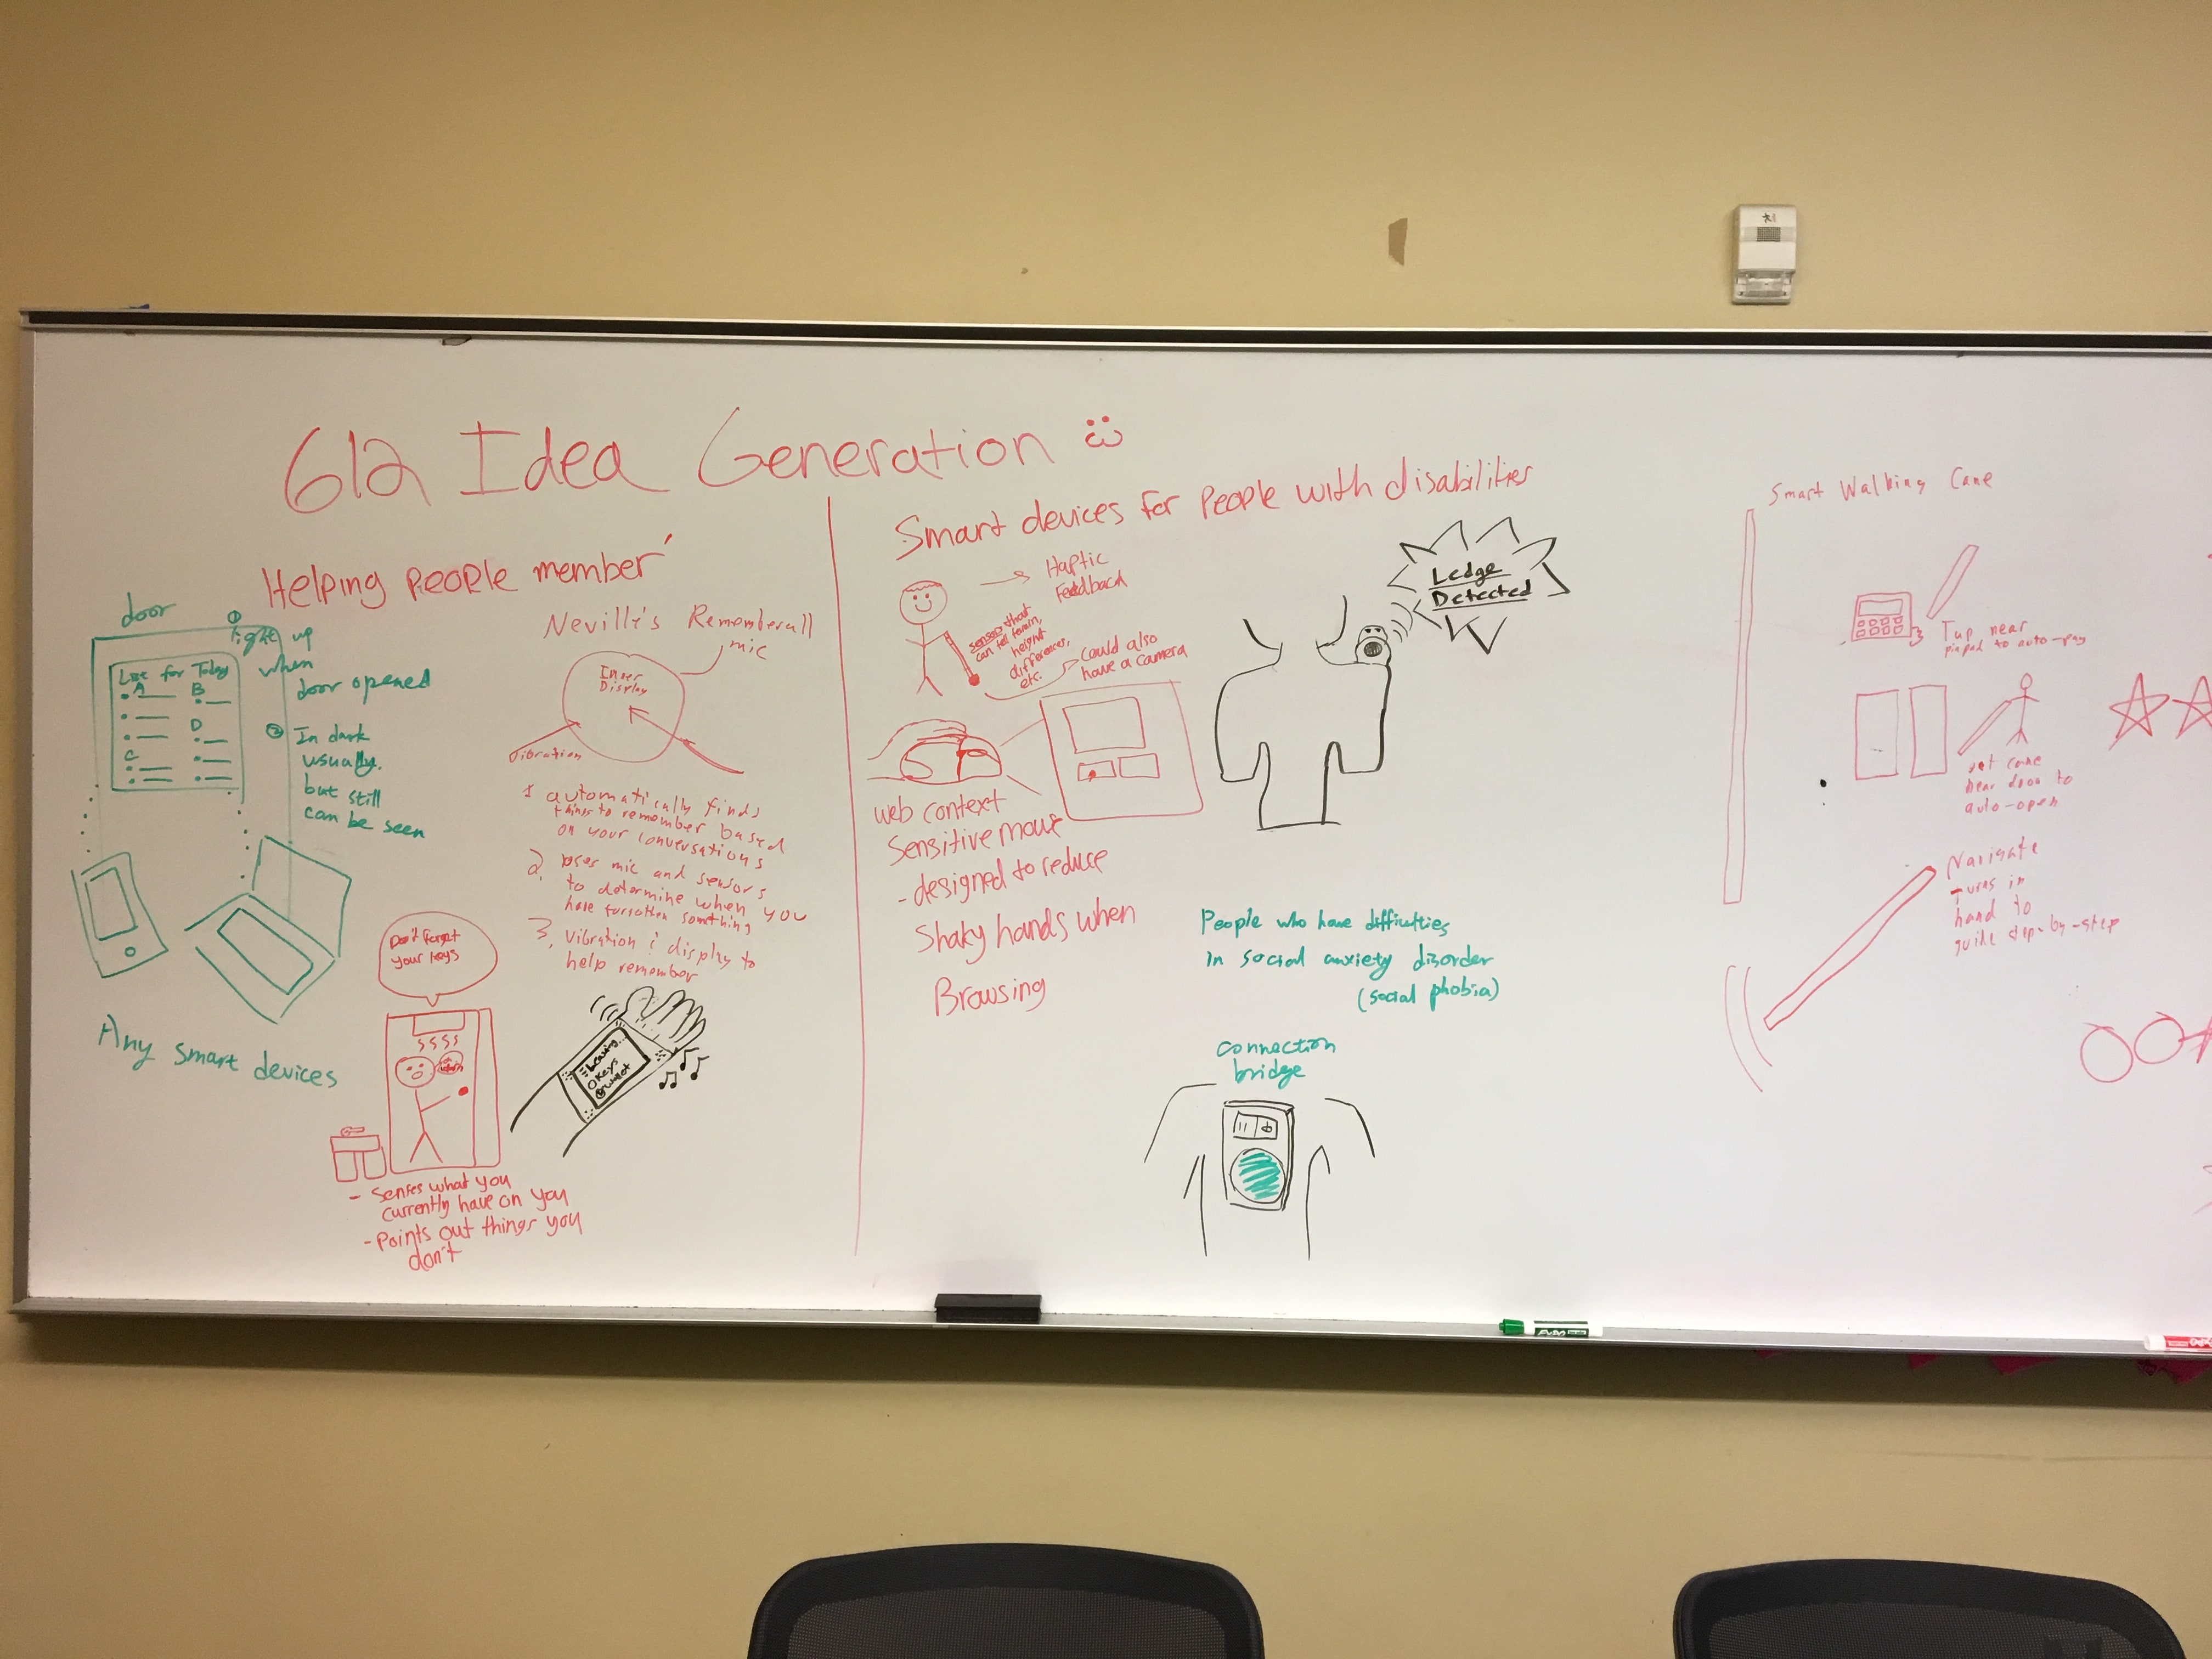 612 Idea Generation
Helping People member'
door
① light up
when
door opened
List for Today
A
B
D
C
② In dark
usually.
but still
can be seen
Any smart devices
Neville's Rememberall
mic
Inner
Display
Vibration
1 automatically finds
things to remember based
on your conversations
2. Uses mic and sensors
to determine when you
have forgotten something
3. Vibration & display to
help remember
Don't Forget
your keys
Leaving...
Keys
- Senses what you
currently have on you
- Points out things you
don't
Smart devices for People with disabilities
Haptic
Feedback
Sensors that
can tell terrain,
height
differences,
etc.
could also
have a camera
Ledge
Detected
web context
Sensitive mouse
- designed to reduce
Shaky hands when
Browsing
People who have difficulties
in social anxiety disorder
(social phobia)
connection
bridge
Smart Walking Cane
Tap near
pinpad to auto-pay
cane
near door to
auto-open
Navigate
Turns in
hand to
guide step-by-step
EXPO